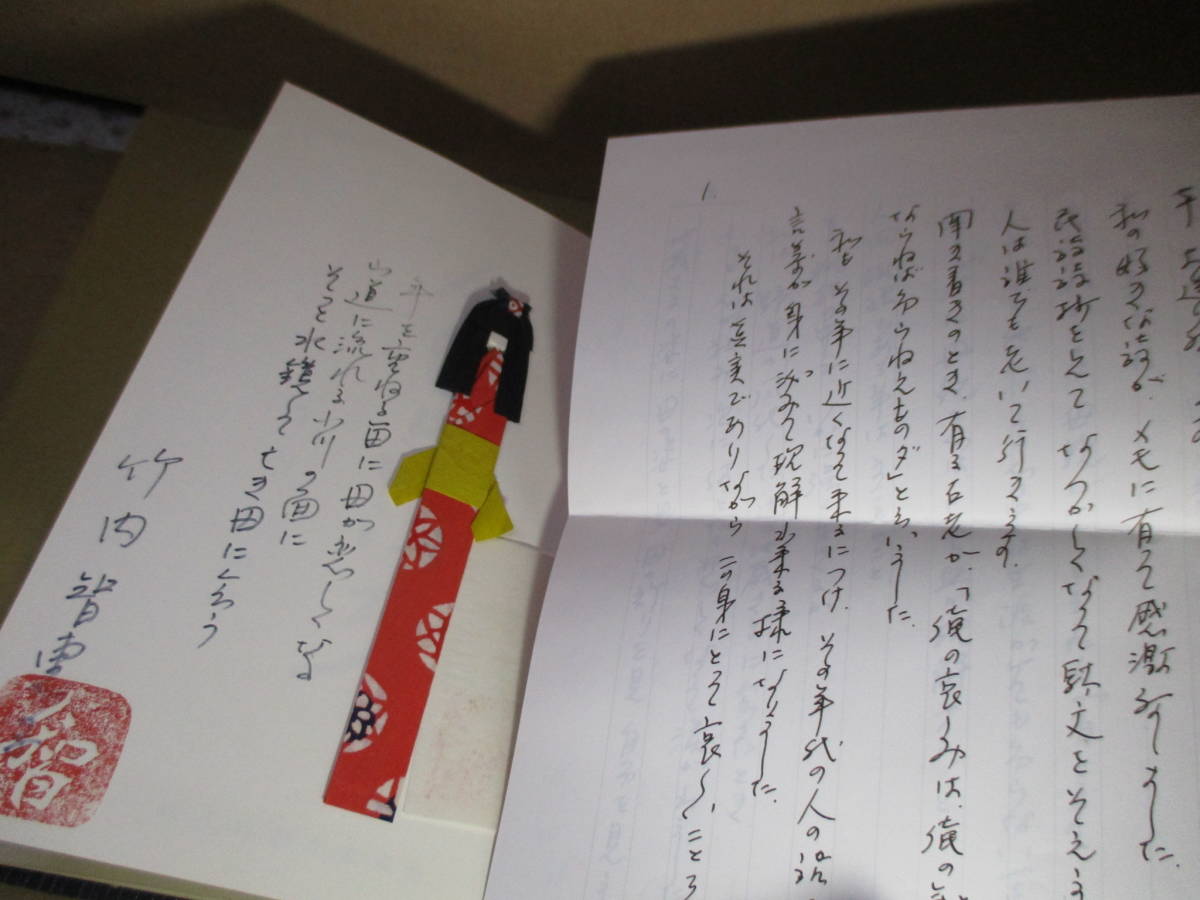 私の好きな話が、メモに有って感激致しました。
民話抄をよんで なつかしくなって駄文をそえ
人は誰でも老いて行きます。
聞き書きのとき、有る古老が、「俺の哀しみは、俺の
ならねばわからねえものダ」と云いました。
私も その年に近くなって来るにつけ、その年代の人の
言葉が身にしみて理解出来る様になりました。
それは真実でありながら この身にとって哀しいこと
1.
年を重ねる面に母が恋しくなる
山道に流れる小川の面に
そっと水鏡して亡き母に会う
竹内智恵
智